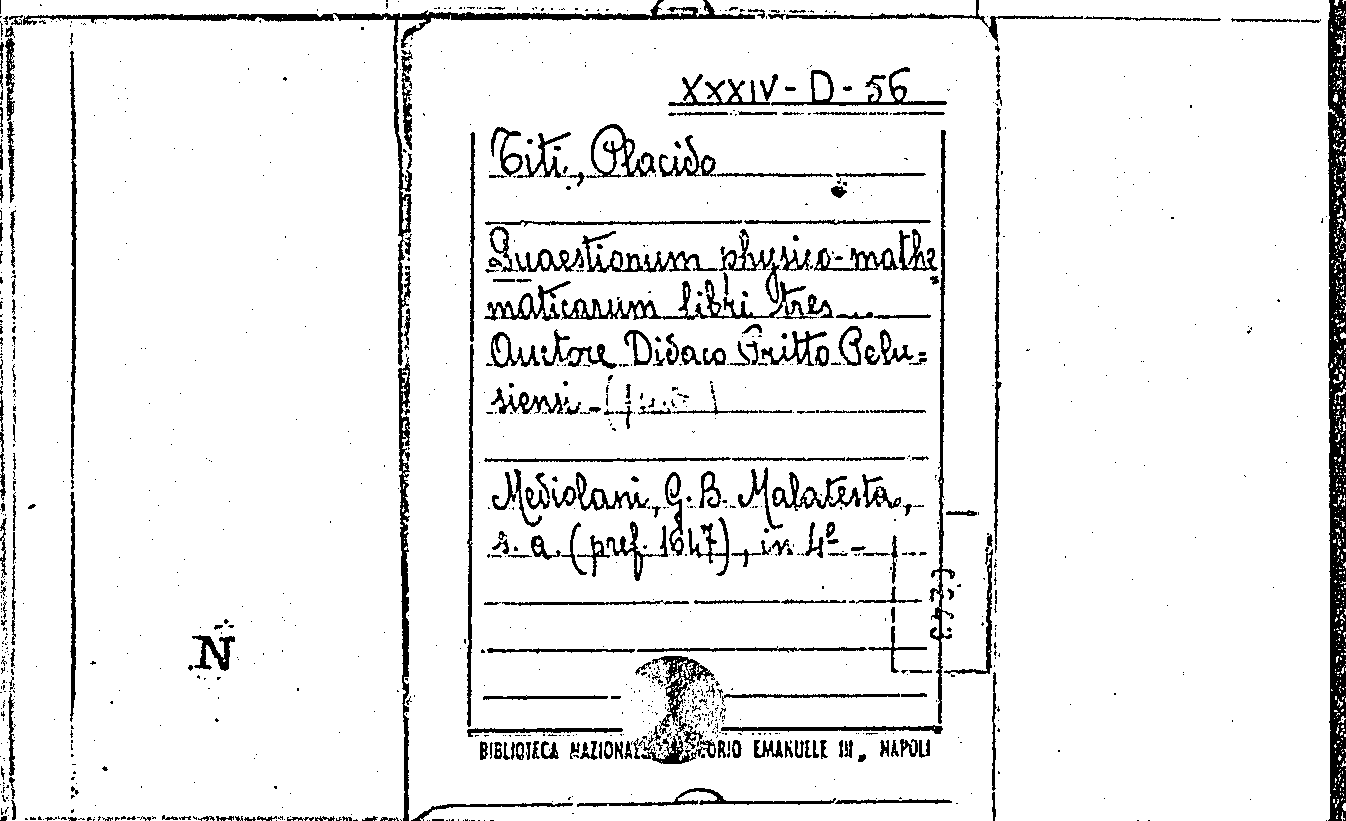 XXXIV - D - 56
Titi, Placido
Quaestionum physico-mathe
maticarum libri tres...
Auctore Didaco Pritto Pelu=
siensi -
Mediolani, G. B. Malatesta,
s. a. (pref. 1647), in 4º -
N
BIBLIOTECA NAZIONALE EMANUELE III, NAPOLI